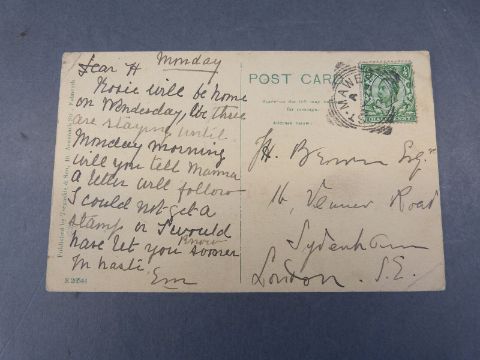 Monday
Dear H
Rosie will be home
on Wendesday, We three
are staying until
Monday morning
will you tell Mama
a letter will follow
I could not get a
stamp or I would
have let you know sooner
In haste Em
POST CARD
for postage.
H. Brown Esqr
16, Venner Road
Sydenham
London. S.E.